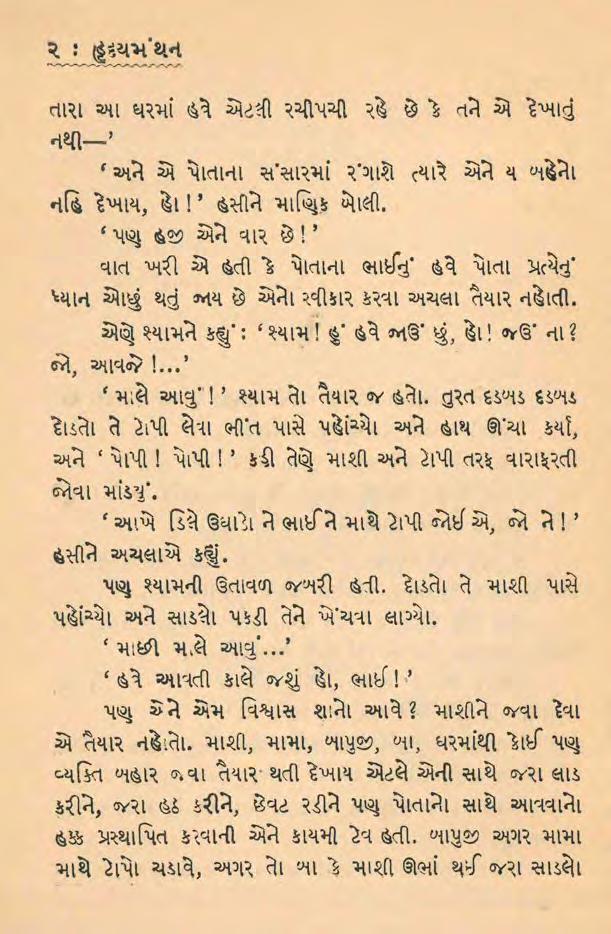 ૨ : હૃદયમંથન
તારા આ ઘરમાં હવે એટલી રચીપચી રહે છે કે તને એ દેખાતું
નથી—’
‘ અને એ પોતાના સંસારમાં રંગાશે ત્યારે એને ય બહેનો
નહિ દેખાય, હો ! ’ હસીને માણિક બોલી.
‘ પણ હજી એને વાર છે ! ’
વાત ખરી એ હતી કે પોતાના ભાઈનું હવે પોતા પ્રત્યેનું
ધ્યાન ઓછું થતું જાય છે એનો સ્વીકાર કરવા અચલા તૈયાર નહોતી.
એણે શ્યામને કહ્યું : ‘ શ્યામ ! હું હવે જાઉં છું, હો ! જઉં ના ?
જો, આવજે !...’
‘ માલે આવું ! ’ શ્યામ તો તૈયાર જ હતો. તુરત દડબડ દડબડ
દોડતો તે ટોપી લેવા ભીંત પાસે પહોંચ્યો અને હાથ ઊંચા કર્યા,
અને ‘ પોપી ! પોપી ! ’ કહી તેણે માશી અને ટોપી તરફ વારાફરતી
જોવા માંડયું.
‘ આખે ડિલે ઉઘાડો ને ભાઈને માથે ટોપી જોઈએ, જો ને ! ’
હસીને અચલાએ કહ્યું.
પણ શ્યામની ઉતાવળ જબરી હતી. દોડતો તે માશી પાસે
પહોંચ્યો અને સાડલો પકડી તેને ખેંચવા લાગ્યો.
‘ માછી માલે આવું...’
‘ હવે આવતી કાલે જશું હો, ભાઈ ! ’
પણ એને એમ વિશ્વાસ શાનો આવે ? માશીને જવા દેવા
એ તૈયાર નહોતો. માશી, મામા, બાપુજી, બા, ઘરમાંથી કોઈ પણ
વ્યક્તિ બહાર જવા તૈયાર થતી દેખાય એટલે એની સાથે જરા લાડ
કરીને, જરા હઠ કરીને, છેવટ રડીને પણ પોતાનો સાથે આવવાનો
હક્ક પ્રસ્થાપિત કરવાની એને કાયમી ટેવ હતી. બાપુજી અગર મામા
માથે ટોપો ચડાવે, અગર તો બા કે માશી ઊભાં થઈ જરા સાડલો